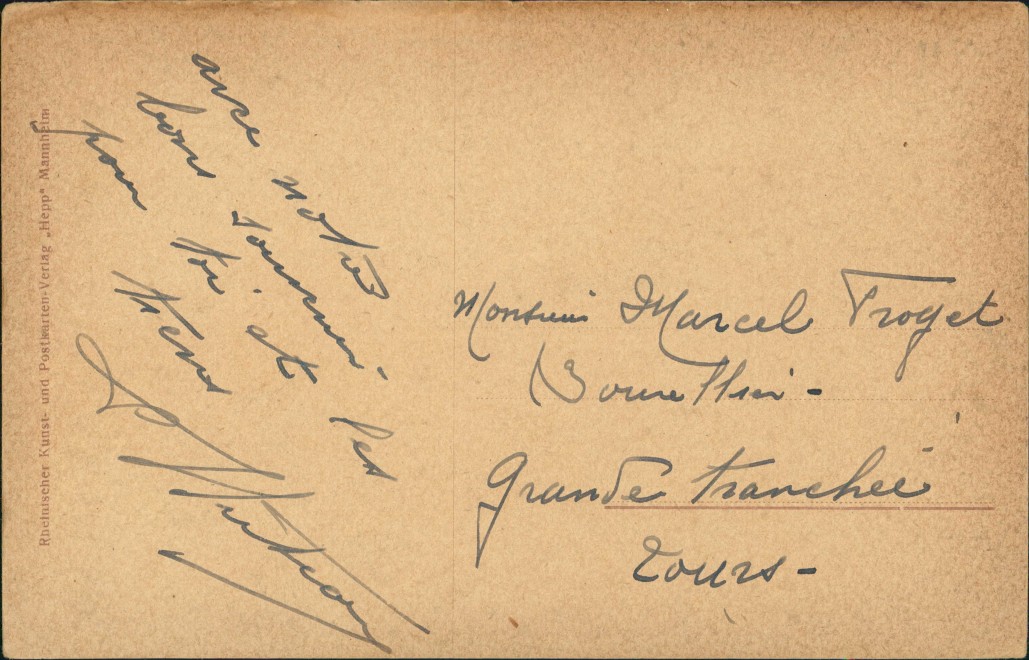 avec notre
bons souvenir. les
pour toi et
tiens
Monsieur Marcel Troget
Bourrellier -
Grande tranchée
Tours -
Rheinischer Kunst- und Postkarten-Verlag „Hepp“ Mannheim